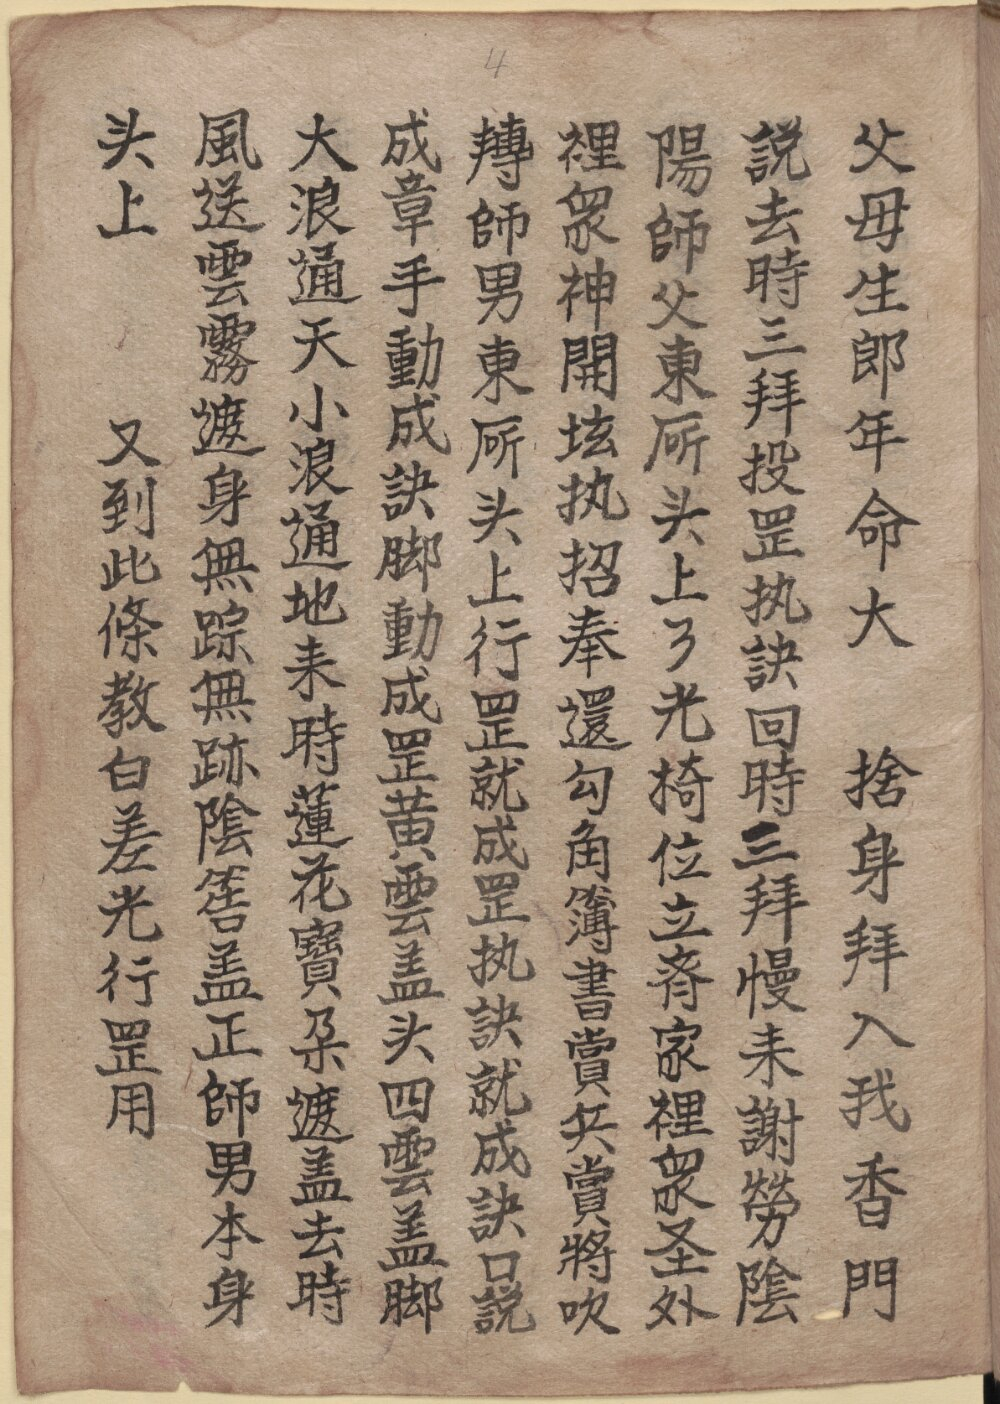 4
父母生郎年命大　捨身拜入我香門
説去時三拜投罡执訣回時三拜慢耒謝勞陰
陽師父東所头上了光椅位立齐家裡衆圣外
裡衆神開坛执招奉還勾角簿書賞兵賞將吹
轉師男東所头上行罡就成罡执訣就成訣口説
成章手動成訣脚動成罡黄雲盖头四雲盖脚
大浪通天小浪通地耒時蓮花寶朵遮盖去時
風送雲霧遮身無踪無跡陰筶盖正師男本身
头上　又到此條教白差光行罡用